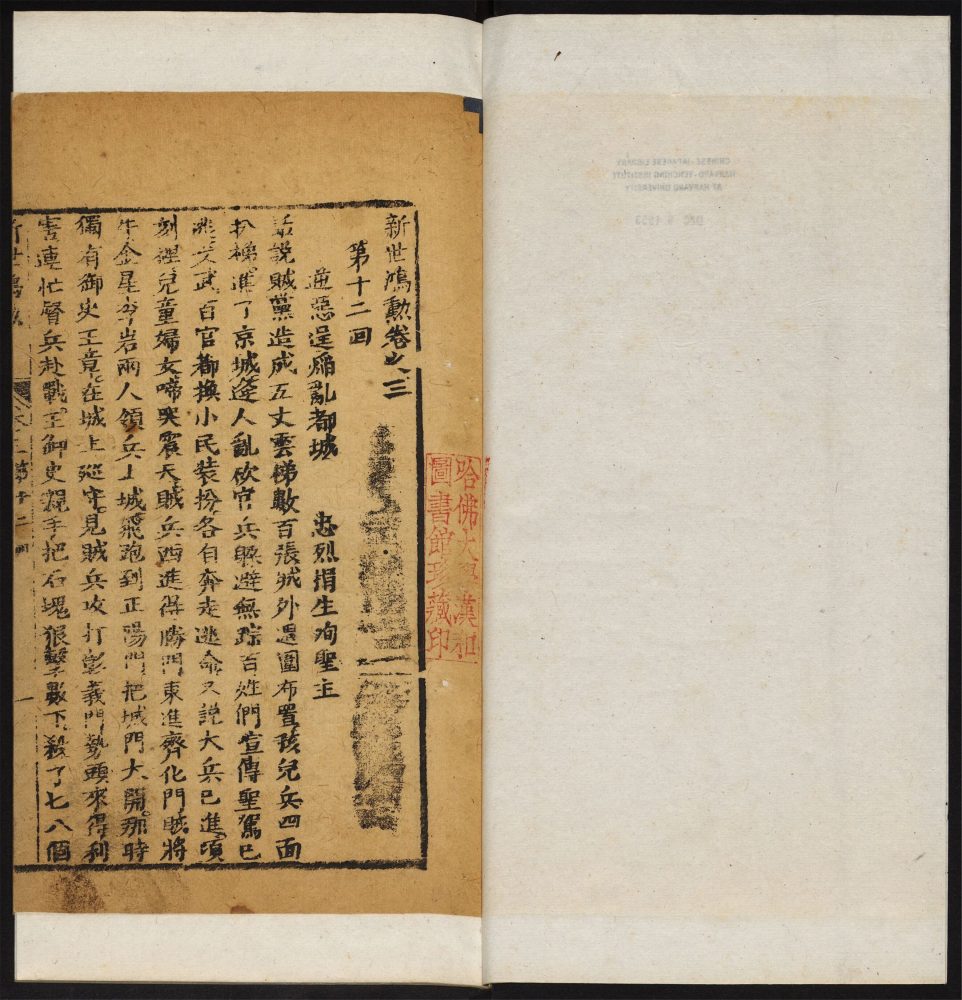 新世鴻勲卷之三
第十二回
逆惡逞殤亂都城　忠烈捐生殉聖主
話説賊黨造成五丈雲梯數百張城外週圍布置孩兒兵四面
扒梯進了京城逢人亂砍官兵躱避無踪百姓們喧傳聖駕已
逃文武百官都換小民裝扮各自奔走逃命又說大兵已進頃
刻裡兒童婦女啼哭震天賊兵西進得勝門東進齊化門賊將
牛金星李岩兩人領兵上城飛跑到正陽門把城門大開那時
獨有御史王章在城上廵守見賊兵攻打彰義門勢頭來得利
害連忙督兵赴戰王御史親手把石塊狠擊數下殺了七八個
新世鴻勲
第十二回
一
哈佛大學漢和
圖書館珍藏印
CHINESE-JAPANESE LIBRARY
HARVARD-YENCHING INSTITUTE
AT HARVARD UNIVERSITY
DEC 9 1953